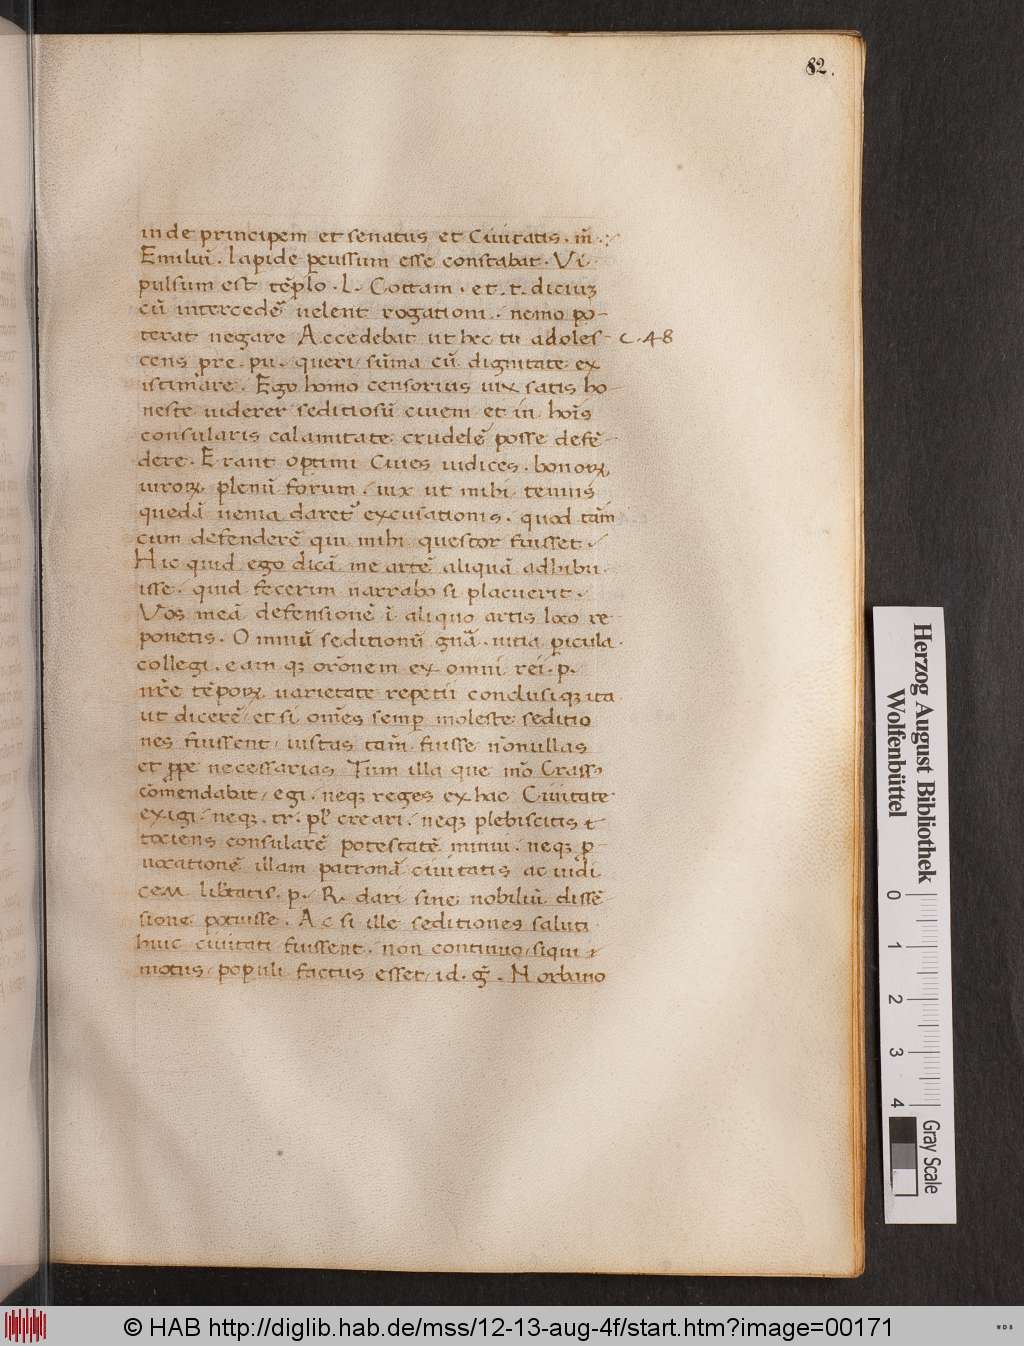 82.
inde principem et senatus et Ciuitatis. m̃.
Emiliũ. lapide pcussum esse constabat. Vi
pulsum est tẽplo. L. Cottam. et. t. diciuʒ
cũ intercedẽ uelent rogationi. nemo po-
terat negare Accedebat ut hec tu adoles
C. 48
cens pre. pu. queri sũma cũ dignitate ex
istimare. Ego homo censorius uix satis ho-
neste uiderer seditiosũ ciuem et in hoĩs
consularis calamitate crudelẽ posse defẽ-
dere. Erant optimi Ciues iudices. bonoꝝ
uiroꝝ. plenũ forum. uix ut mihi tenuis
quedã uenia daret excusationis. quod tam̃
cum defenderẽ qui mihi questor fuisset.
Hic quid ego dicã me artẽ aliquã adhibu
isse. quid fecerim narrabo si placuerit.
Vos meã defensionẽ ĩ aliquo artis loco re
ponetis. Omniũ seditionũ gñã. uitia picula.
collegi. eam qʒ orõnem ex omni rei. p.
nr̃e tẽpoꝝ uarietate repetii conclusiqʒ ita
ut dicerẽ et si om̃es semp moleste seditio
nes fuissent iustas tam̃ fuisse nõnullas
et ꝓpe necessarias Tum illa que mõ Crass᾽
cõmendabat egi. neqʒ reges ex hac Ciuitate
exigi. neqʒ. tr. pl᾽ creari. neqʒ plebiscitis t
tociens consularẽ potestatẽ minui. neqʒ p
uocationẽ illam patronã ciuitatis ac uidi
cem libtatis. p. R. dari sine nobiliũ dissẽ
sione potuisse. Ac si ille seditiones saluti
huic ciuitati fuissent. non continuo siqui
motus populi factus esset id. g̃. Norbano
Herzog August Bibliothek
Wolfenbüttel
0 1 2 3 4
Gray Scale
© HAB http://diglib.hab.de/mss/12-13-aug-4f/start.htm?image=00171